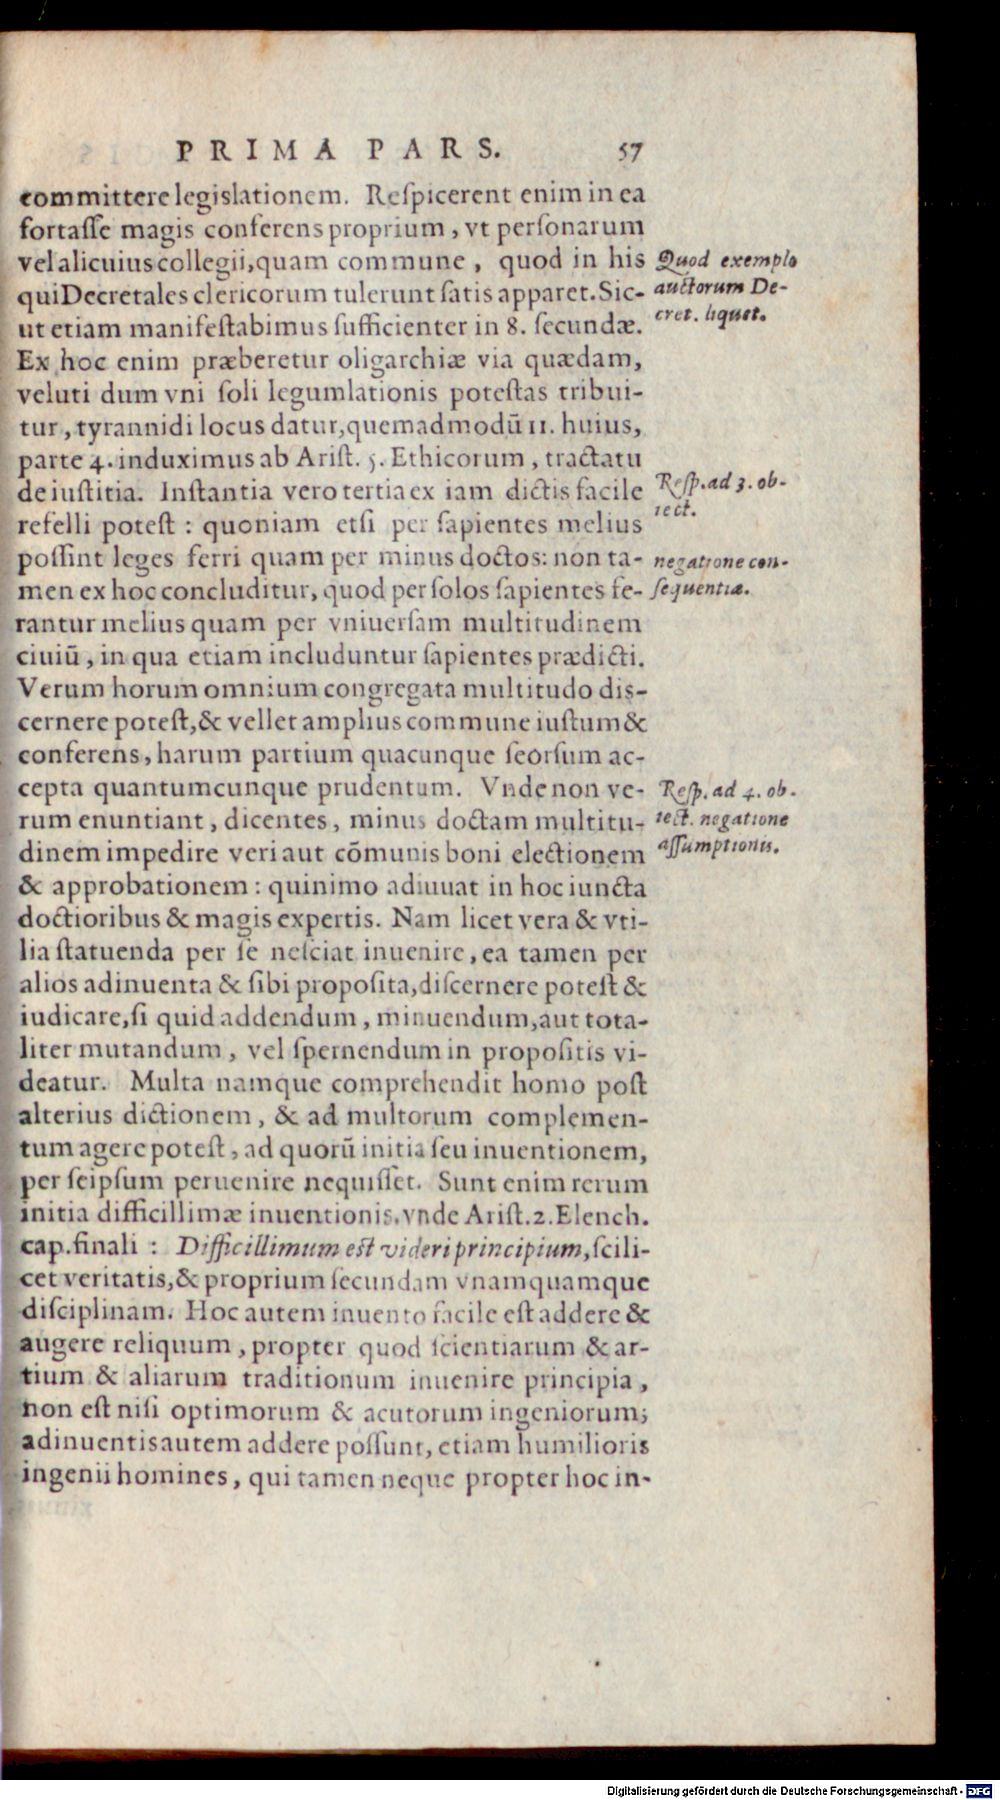 PRIMA PARS. 57
committere legislationem. Reſpicerent enim in ea
fortaſſe magis conferens proprium, vt perſonarum
vel alicuius collegii, quam commune, quod in his
qui Decretales clericorum tulerunt ſatis apparet. Sic-
ut etiam manifeſtabimus ſufficienter in 8. ſecundæ.
Ex hoc enim præberetur oligarchiæ via quædam,
veluti dum vni ſoli legumlationis poteſtas tribui-
tur, tyrannidi locus datur, quemadmodū 11. huius,
parte 4. induximus ab Ariſt. 5. Ethicorum, tractatu
de iuſtitia. Inſtantia vero tertia ex iam dictis facile
refelli poteſt: quoniam etſi per ſapientes melius
poſſint leges ferri quam per minus doctos: non ta-
men ex hoc concluditur, quod per ſolos ſapientes fe-
rantur melius quam per vniuerſam multitudinem
ciuiū, in qua etiam includuntur ſapientes prædicti.
Verum horum omnium congregata multitudo dis-
cernere poteſt, & vellet amplius commune iuſtum &
conferens, harum partium quacunque ſeorſum ac-
cepta quantumcunque prudentum. Vnde non ve-
rum enuntiant, dicentes, minus doctam multitu-
dinem impedire veri aut cōmunis boni electionem
& approbationem: quinimo adiuuat in hoc iuncta
doctioribus & magis expertis. Nam licet vera & vti-
lia ſtatuenda per ſe neſciat inuenire, ea tamen per
alios adinuenta & ſibi propoſita, diſcernere poteſt &
iudicare, ſi quid addendum, minuendum, aut tota-
liter mutandum, vel ſpernendum in propoſitis vi-
deatur. Multa namque comprehendit homo poſt
alterius dictionem, & ad multorum complemen-
tum agere poteſt, ad quorū initia ſeu inuentionem,
per ſeipſum peruenire nequiſſet. Sunt enim rerum
initia difficillimæ inuentionis. vnde Ariſt. 2. Elench.
cap. finali: Difficillimum eſt videri principium, ſcili-
cet veritatis, & proprium ſecundam vnamquamque
diſciplinam. Hoc autem inuento facile eſt addere &
augere reliquum, propter quod ſcientiarum & ar-
tium & aliarum traditionum inuenire principia,
non eſt niſi optimorum & acutorum ingeniorum;
adinuentis autem addere poſſunt, etiam humilioris
ingenii homines, qui tamen neque propter hoc in-
Quod exemplo
auctorum De-
cret. liquet.
Reſp. ad 3. ob-
iect.
negatione con-
ſequentiæ.
Reſp. ad 4. ob-
iect. negatione
aſſumptionis.
Digitalisierung gefördert durch die Deutsche Forschungsgemeinschaft - DFG